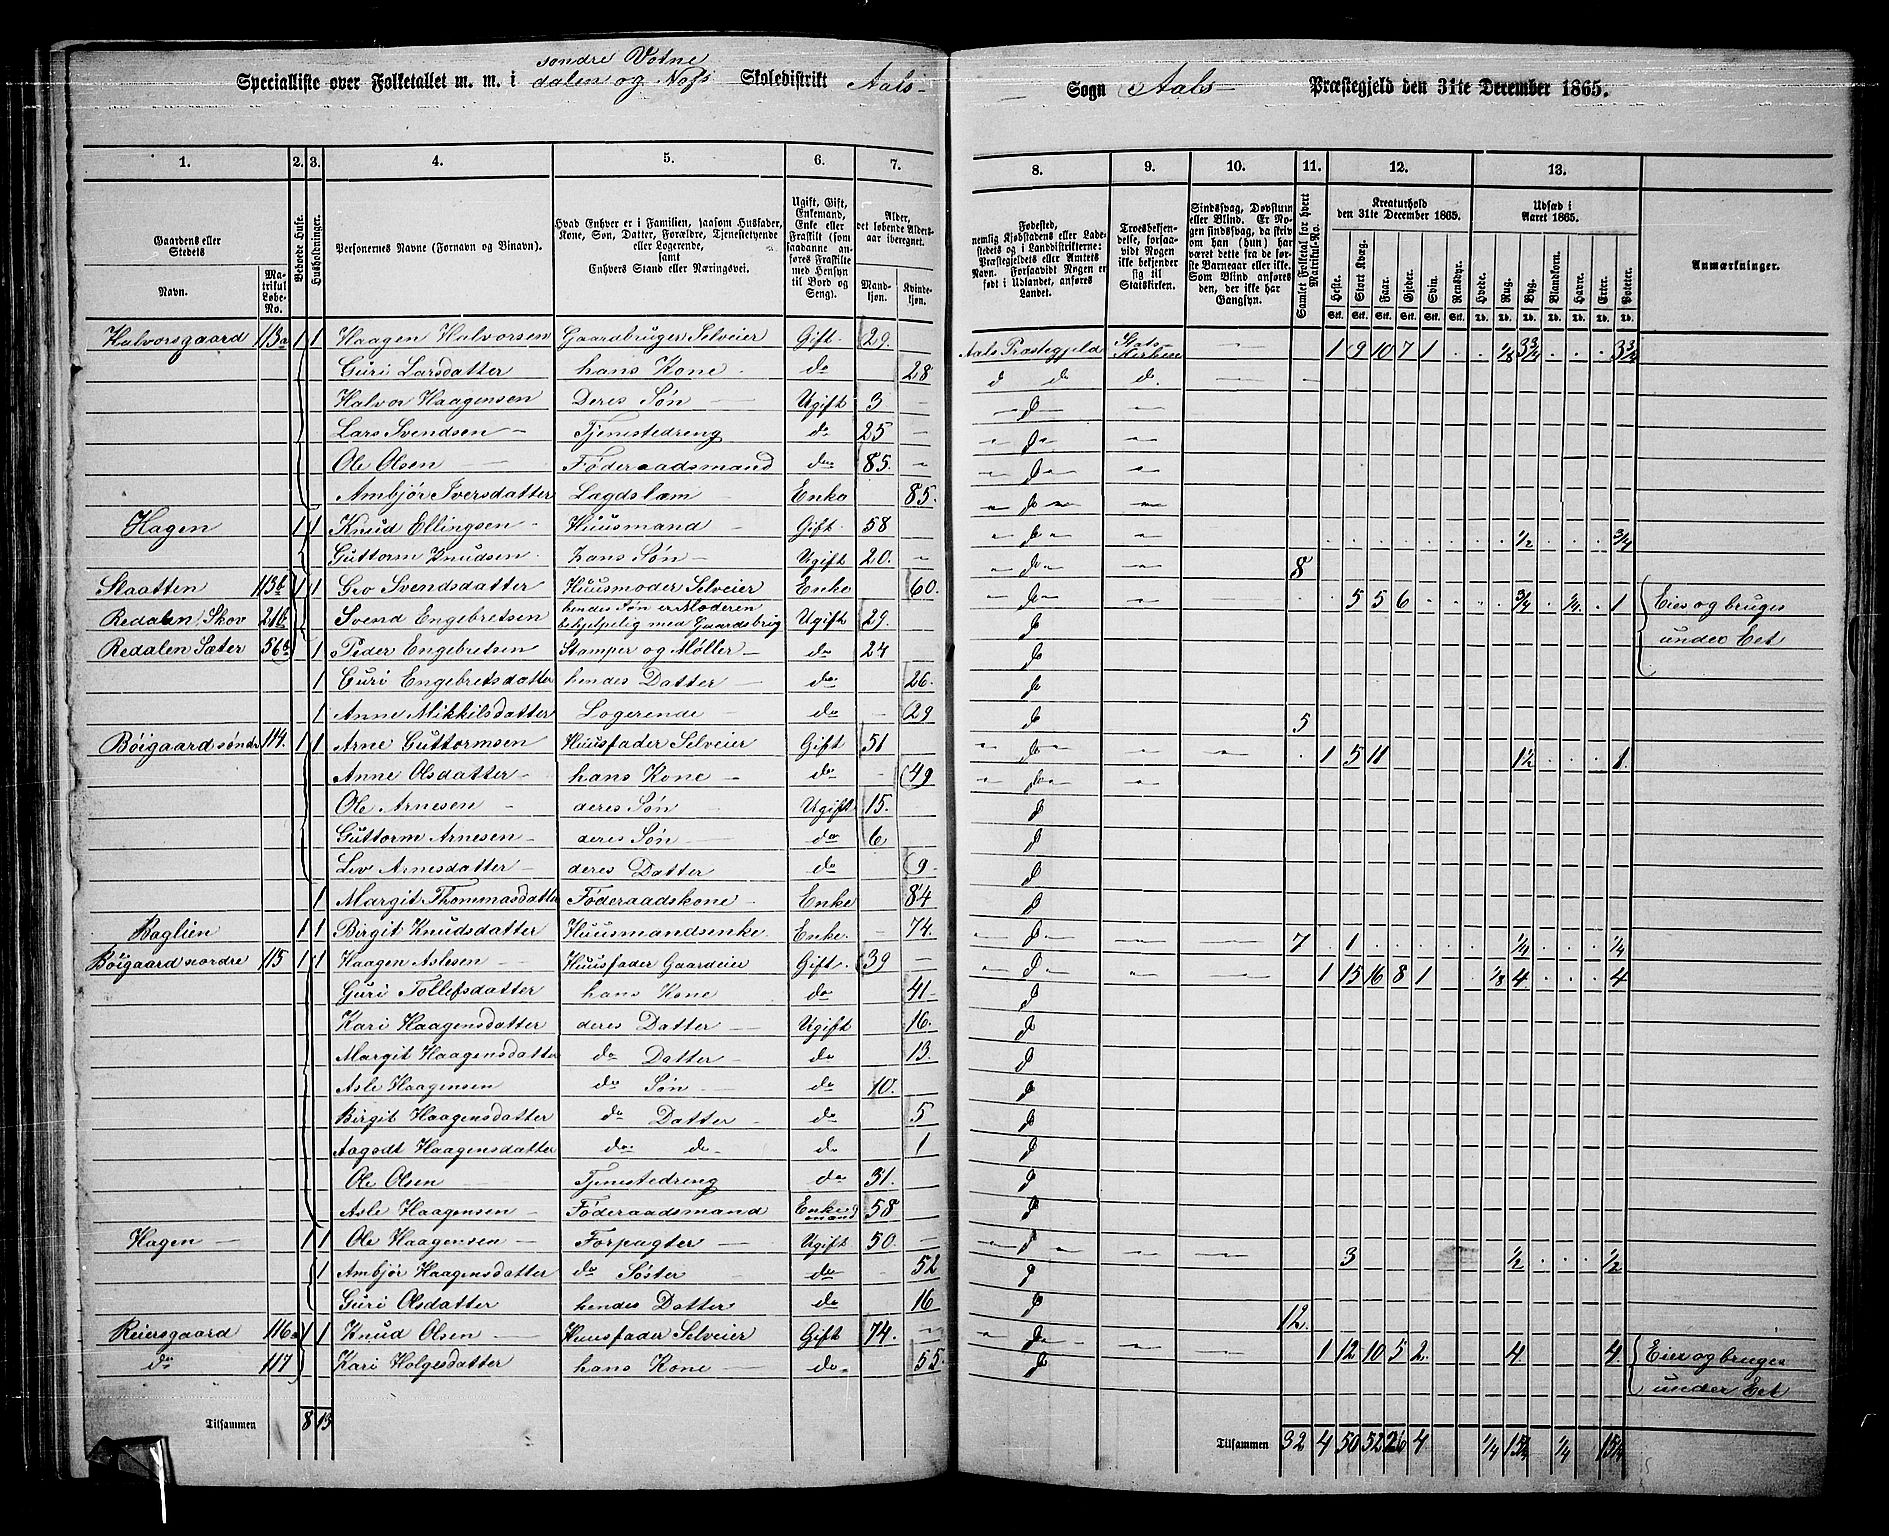 Specialliste over Folketallet m. m. i søndre Votne
dalen og Nøss Skoledistrikt Aals Sogn Aals Præstegjeld den 31te December 1865.
1. 2. 3. 4. 5. 6. 7. 8. 9. 10. 11. 12. 13.
Gaardens eller Stedets Navn. Matrikul Løbe-No. Beboede Huse. Husholdninger. Personernes Navne (Fornavn og Binavn). Hvad Enhver er i Familien, saasom Husfader, Kone, Søn, Datter, Forældre, Tjenestetyende eller Logerende, samt Enhvers Stand eller Næringsvei. Ugift, Gift, Enkemand, Enke eller Fraskilt (som saadanne anføres Fraskilte med Hensyn til Bord og Seng). Alder, det løbende Aldersaar iberegnet. Mandkjøn. Kvindekjøn.
Fødested, nemlig Kjøbstadens eller Ladestedets og i Landdistrikterne: Præstegjeldets eller Amtets Navn. Forsaavidt Nogen er født i Udlandet, anføres Landet. Troesbekjendelse, forsaavidt Nogen ikke bekjender sig til Statskirken. Sindssvag, Døvstum eller Blind. Er Nogen sindssvag, da skrives om han (hun) har været dette fra de første Barneaar eller ikke. Som Blind anføres den, der ikke har Gangsyn. Samlet Folketal for hvert Matrikul-No. Kreaturhold den 31te December 1865. Heste. Stort Kvæg. Faar. Gjeder. Svin. Rensdyr. Udsæd i Aaret 1865. Hvede. Rug. Byg. Blandkorn. Havre. Erter. Poteter. Anmærkninger.
Halvorsgaard 113a 1 1 Haagen Halvorsen Gaardbruger Selveier Gift 29. Aals Præstegjeld Stats-Kirken 1 9 10 7 1 1/8 3 3/4 3 3/4
Guri Larsdatter hans Kone do 28 d do do.
Halvor Haagensen Deres Søn Ugift 3 d
Lars Svendsen Tjenestedreng do 25 do
Ole Olsen Føderaadsmand do 85. do
Ambjør Iversdatter Lægdslam Enke 85. do
Hagen 1 1 Knud Ellingsen Huusmand Gift 58 do 1/2 3/4
Guttorm Knudsen hans Søn Ugift 20. do 8
Staatten 113b 1 1 Gro Svendsdatter Huusmoder Selveier Enke 60. do 5 5 6 3/4 1/4 1 Eies og bruges
Redalen Skov 21b Svend Engebretsen hendes Søn er Moderen behjelpelig med Gaardsbrug Ugift 29. d under Eet
Redalen Sæter 56b 1 Peder Engebretsen Stamper og Møller do 24 d
1 Guri Engebretsdatter hendes Datter do 26. d
1 Anne Mikkilsdatter Logerende do 29 d 5
Bøigaard søndre 114. 1 1 Arne Guttormsen Huusfader Selveier Gift 51 do 1 5 11 1 1/2 1
Anne Olsdatter hans Kone do 49 do
Ole Arnesen deres Søn Ugift 15. d
Guttorm Arnesen deres Søn do 6 d
Liv Arnesdatter deres Datter do 9. d
1 Margit Thommasdatter Føderaadskone Enke 84 d
Baglien 1 1 Birgit Knudsdatter Huusmandsenke Enke 74. d 7 1 1/4 1/4
Bøigaard nordre 115 1 1 Haagen Aslesen Huusfader Gaardeier Gift 39 do 1 15 16 8 1 1/8 4 4
Guri Tollefsdatter hans Kone do 41 d
Kari Haagensdatter deres Datter Ugift 16. d
Margit Haagensdatter do Datter do 13. d
Asle Haagensen do Søn do 10. d
Birgit Haagensdatter do Datter do 5 d
Aagodt Haagensdatter do do do 1 d
Ole Olsen Tjenestedreng do 31. d
Asle Haagensen Føderaadsmand Enkemand 58 d
Hagen 1 1 Ole Haagensen Forpagter Ugift 50. d 3 1/2 1/2
1 Ambjør Haagensdatter do Søster do 52 d
Guri Olsdatter hendes Datter do 16 d 12.
Reiersgaard 116 1 1 Knud Olsen Huusfader Selveier Gift 74. do 1 12 10 5 2 4 4. Eies og bruges
do 117 Kari Holgesdatter hans Kone do 55. d under Eet
Tilsammen 8 13 Tilsammen 32 4 50 52 26 4 1/4 15 1/4 15 1/4